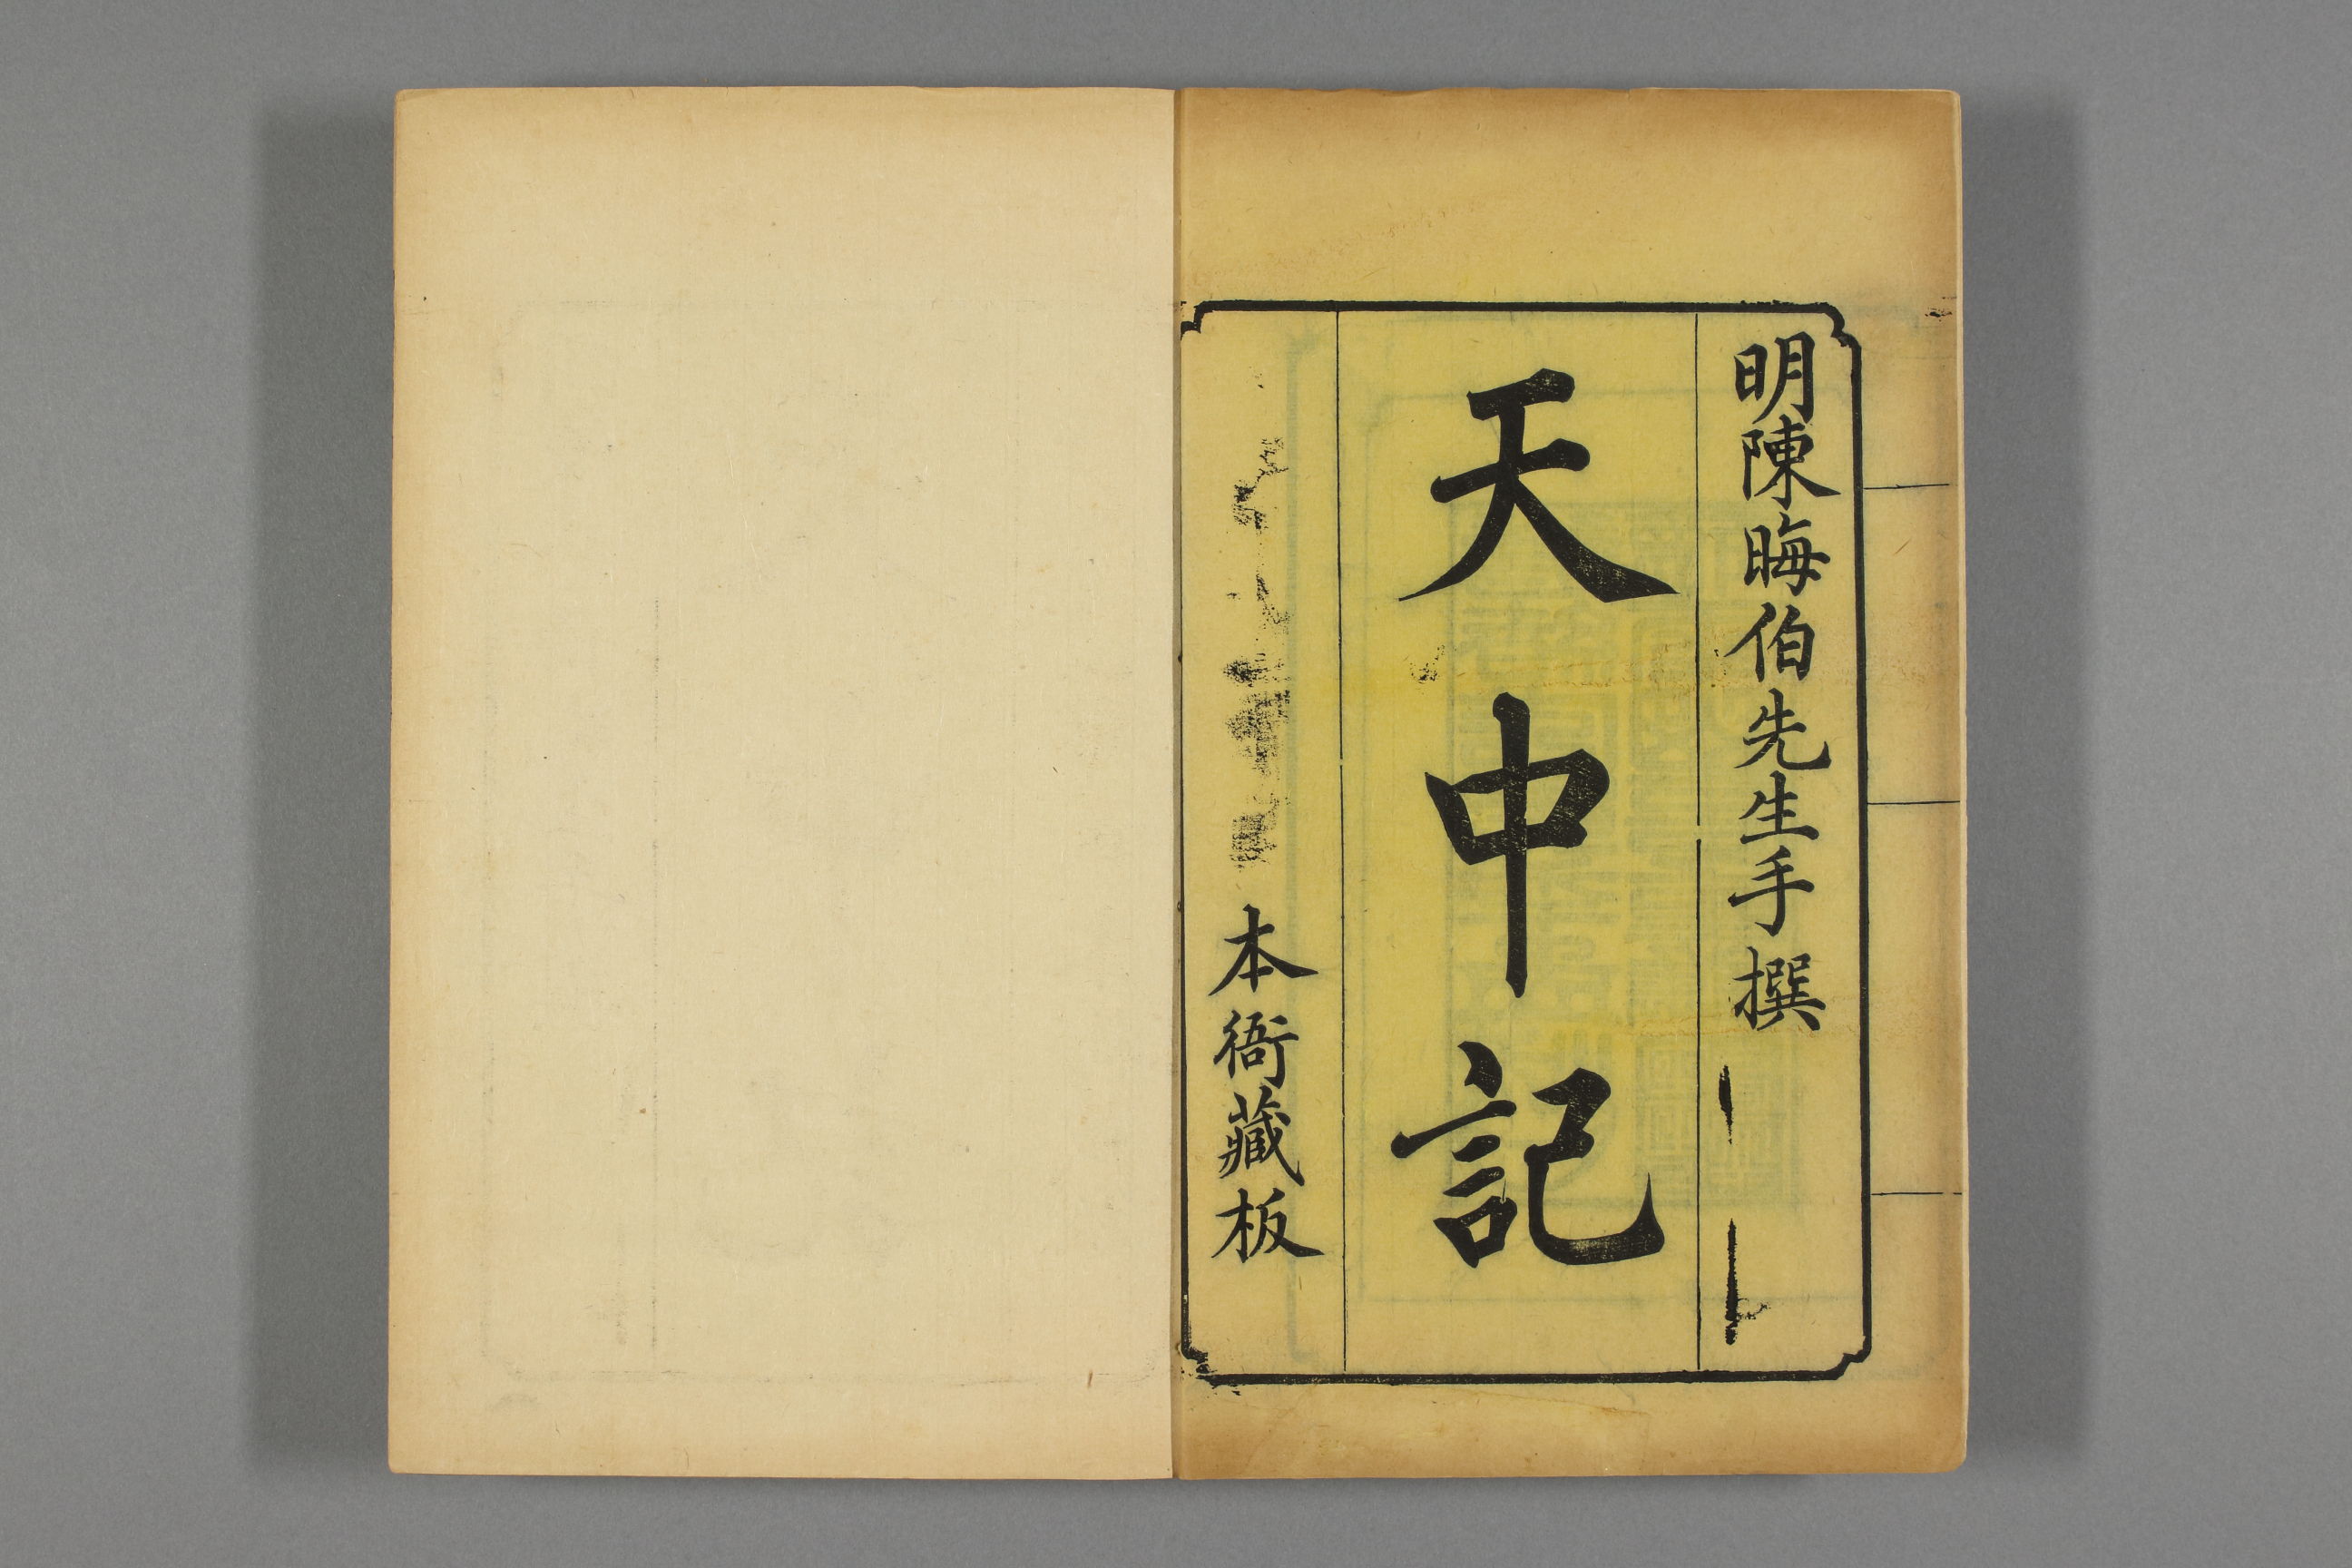 明陳晦伯先生手撰
天中記
本衙藏板